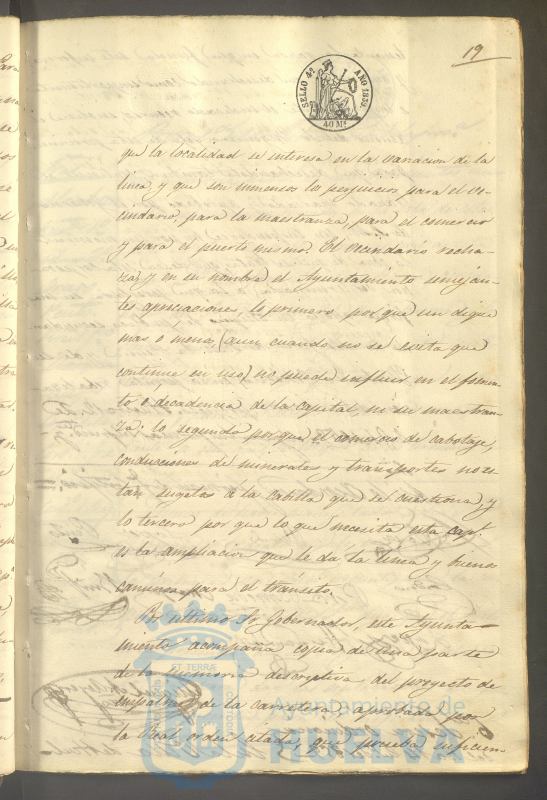 19
SELLO 4º AÑO 1859.
40 Ms
que la localidad se interesa en la variacion de la
linea, y que son inmensos los perjuicios para el ve-
cindario, para la maestranza, para el comercio
y para el puerto mismo. El vecindario recha-
za, y en su nombre el Ayuntamiento semejan-
tes apreciaciones, lo primero por que un dique
mas o menos, (aun cuando no se evita que
continue en uso) no puede influir en el fomen-
to ó decadencia de la capital, ni su maestran-
za: lo segundo por que el comercio de cabotaje,
conducciones de minerales y transportes no es-
tan sugetas á la que se cuestiona y
lo tercero por que lo que necesita esta capl.
es la ampliacion que le da la linea y buenos
caminos para el tránsito.
Por ultimo Sr Gobernador, este Ayunta-
miento acompaña copia de una parte
de la memoria descriptiva del proyecto de
de la carretera aprobada por
la Real orden citada, que prueba suficien-
ET TERRAE
Ayuntamiento de
HUELVA